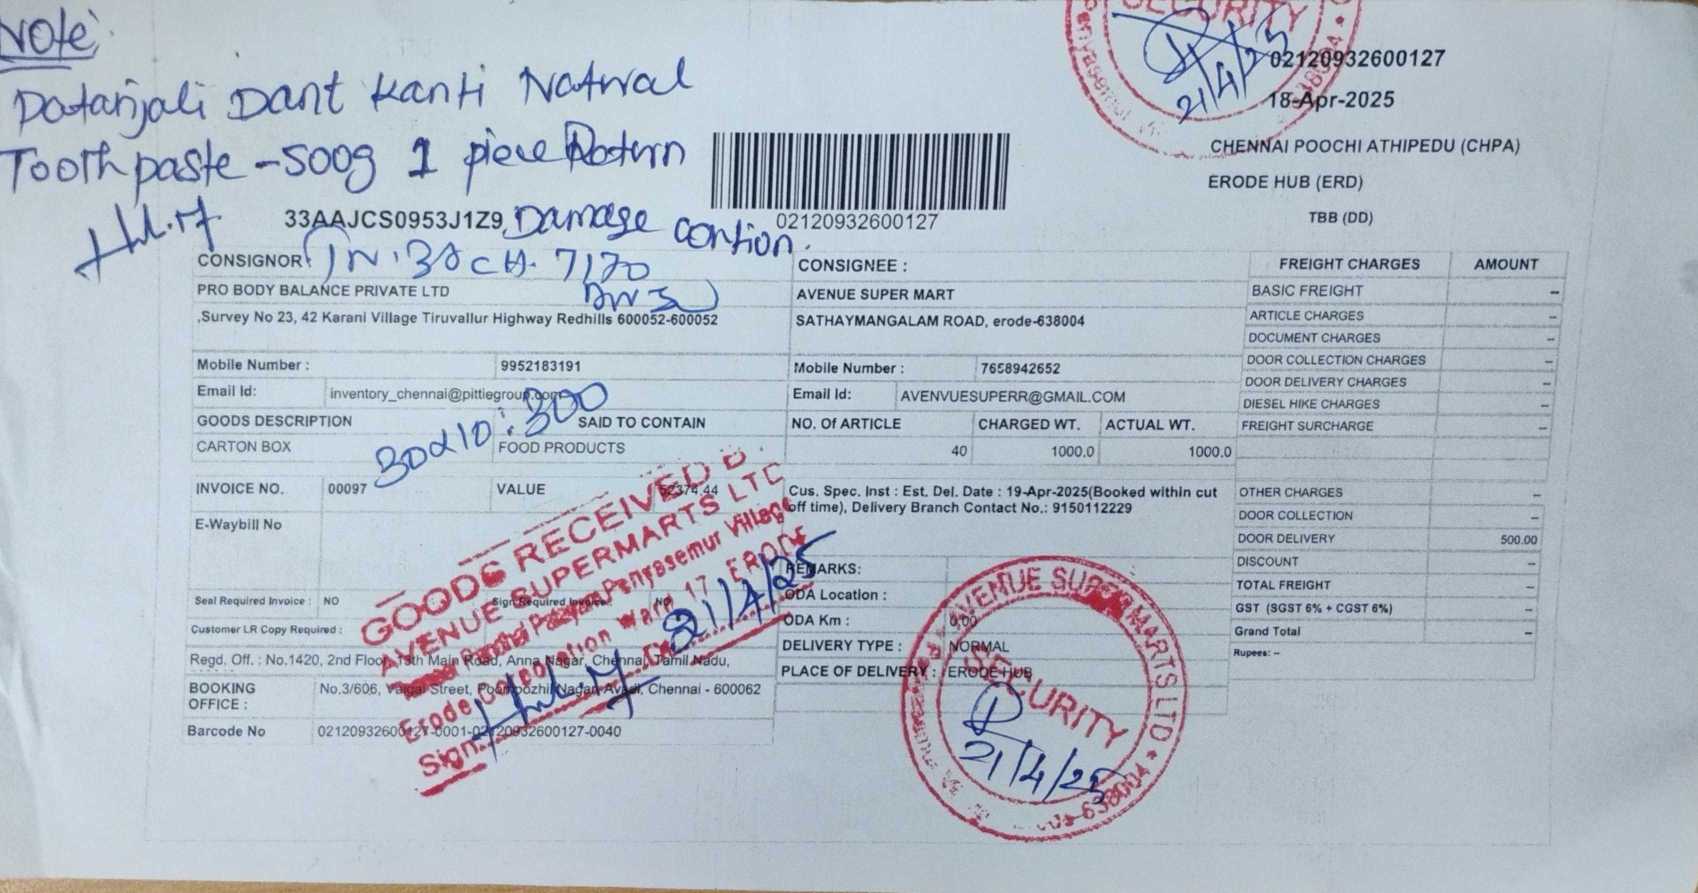 Note:
Patanjali Dant Kanti Natural
Toothpaste - 500g 1 piece Return
Damage contion.
SECURITY
21/4/25
02120932600127
18-Apr-2025
CHENNAI POOCHI ATHIPEDU (CHPA)
ERODE HUB (ERD)
TBB (DD)
33AAJCS0953J1Z9
02120932600127
CONSIGNOR
7170
CONSIGNEE :
FREIGHT CHARGES AMOUNT
PRO BODY BALANCE PRIVATE LTD
AVENUE SUPER MART
BASIC FREIGHT --
,Survey No 23, 42 Karani Village Tiruvallur Highway Redhills 600052-600052
SATHAYMANGALAM ROAD, erode-638004
ARTICLE CHARGES --
DOCUMENT CHARGES --
Mobile Number : 9952183191
Mobile Number : 7658942652
DOOR COLLECTION CHARGES --
Email Id: inventory_chennai@pittiegroup.com
Email Id: AVENVUESUPERR@GMAIL.COM
DOOR DELIVERY CHARGES --
DIESEL HIKE CHARGES --
GOODS DESCRIPTION SAID TO CONTAIN
NO. Of ARTICLE CHARGED WT. ACTUAL WT.
FREIGHT SURCHARGE --
CARTON BOX FOOD PRODUCTS
40 1000.0 1000.0
30x10:300
INVOICE NO. 00097 VALUE 52374.44
Cus. Spec. Inst : Est. Del. Date : 19-Apr-2025(Booked within cut
off time), Delivery Branch Contact No.: 9150112229
OTHER CHARGES --
DOOR COLLECTION --
E-Waybill No
DOOR DELIVERY 500.00
DISCOUNT --
REMARKS:
TOTAL FREIGHT --
Seal Required Invoice : NO Sign Required Invoice : NO
ODA Location :
GST (SGST 6% + CGST 6%) --
Customer LR Copy Required :
ODA Km : 0.00
Grand Total --
DELIVERY TYPE : NORMAL
Rupees: --
Regd. Off. : No.1420, 2nd Floor, 13th Main Road, Anna Nagar, Chennai, Tamil Nadu,
PLACE OF DELIVERY : ERODE HUB
BOOKING
OFFICE :
No.3/606, Vaigai Street, Poompozhil Nagar, Avadi, Chennai - 600062
Barcode No 02120932600127-0001-02120932600127-0040
GOODS RECEIVED
AVENUE SUPERMARTS LTD
Village
Erode Corporation Ward 17 ERODE
Sign
21/4/25
AVENUE SUPERMARTS LTD
SECURITY
638004
21/4/25